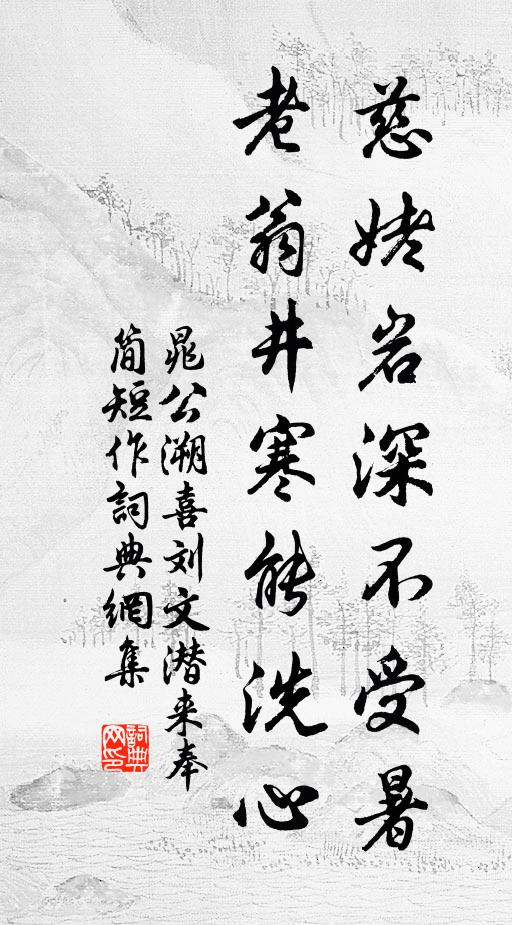 慈姥岩深不受暑
老翁井寒能洗心
晁公溯喜刘文潜来奉
简短作詞典網集
詞典網印